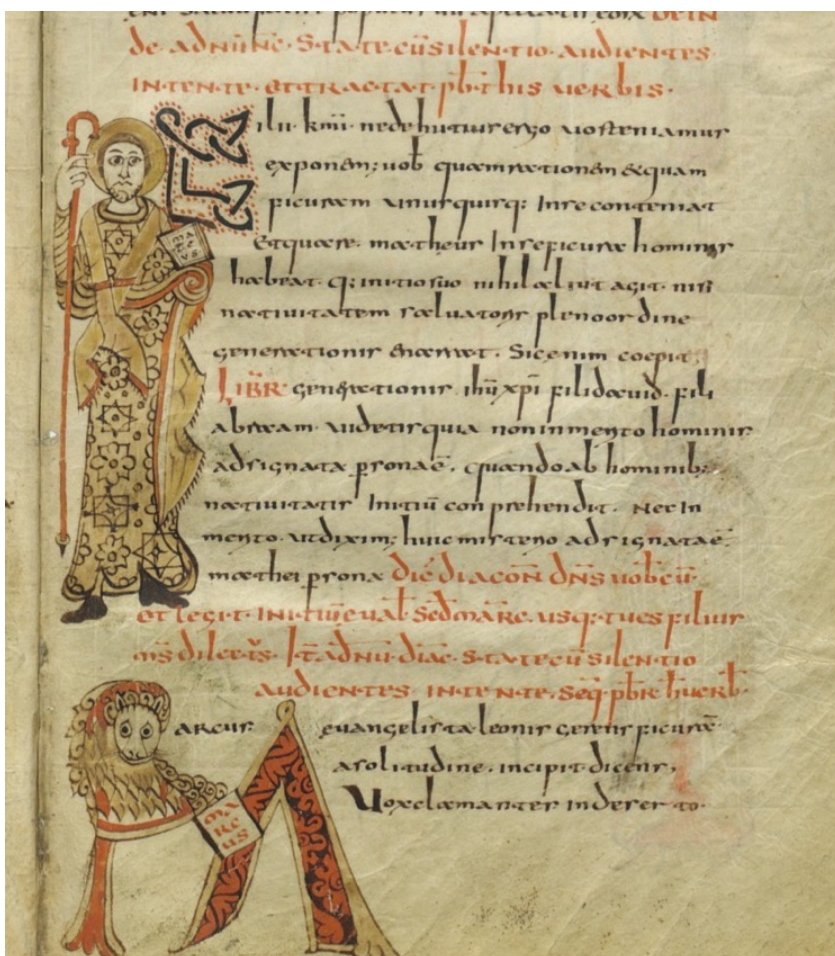 DEIN
de adnunc. State cū silentio audientes
intente. et tractat pbt his uerbis.
Filii kmi ne diutius ergo uos teniamus
exponem; uob quam rationem & quam
figuram unusquisq; In se conteniat
Et quare. matheus In se figura hominis
habeat. q; initio suo nihil aliut agit nisi
natiuitatem saluatoris pleno ordine
generationis enarret. Sic enim coepit.
LIBR generationis ihū xpi fili dauid. fili
abraam. Uidetis quia non inmerto hominis
adsignata pronaē. quando ab hominib;
natiuitatis Initiū conprehendit. Nec In
merto. ut dixim; huic misterio adsignataē
mathei prona Dic diacon dns uobcū
et legit. Initiū eual Sedmarc. usq; tu es filius
ms dilects. It adnū diac. State cū silentio
audientes intente. Seq pbr h uerb
Marcus euangelista leonis gerens figurā
a solitudine. incipit dicens,
Uox clamantes in deserto.
marcus